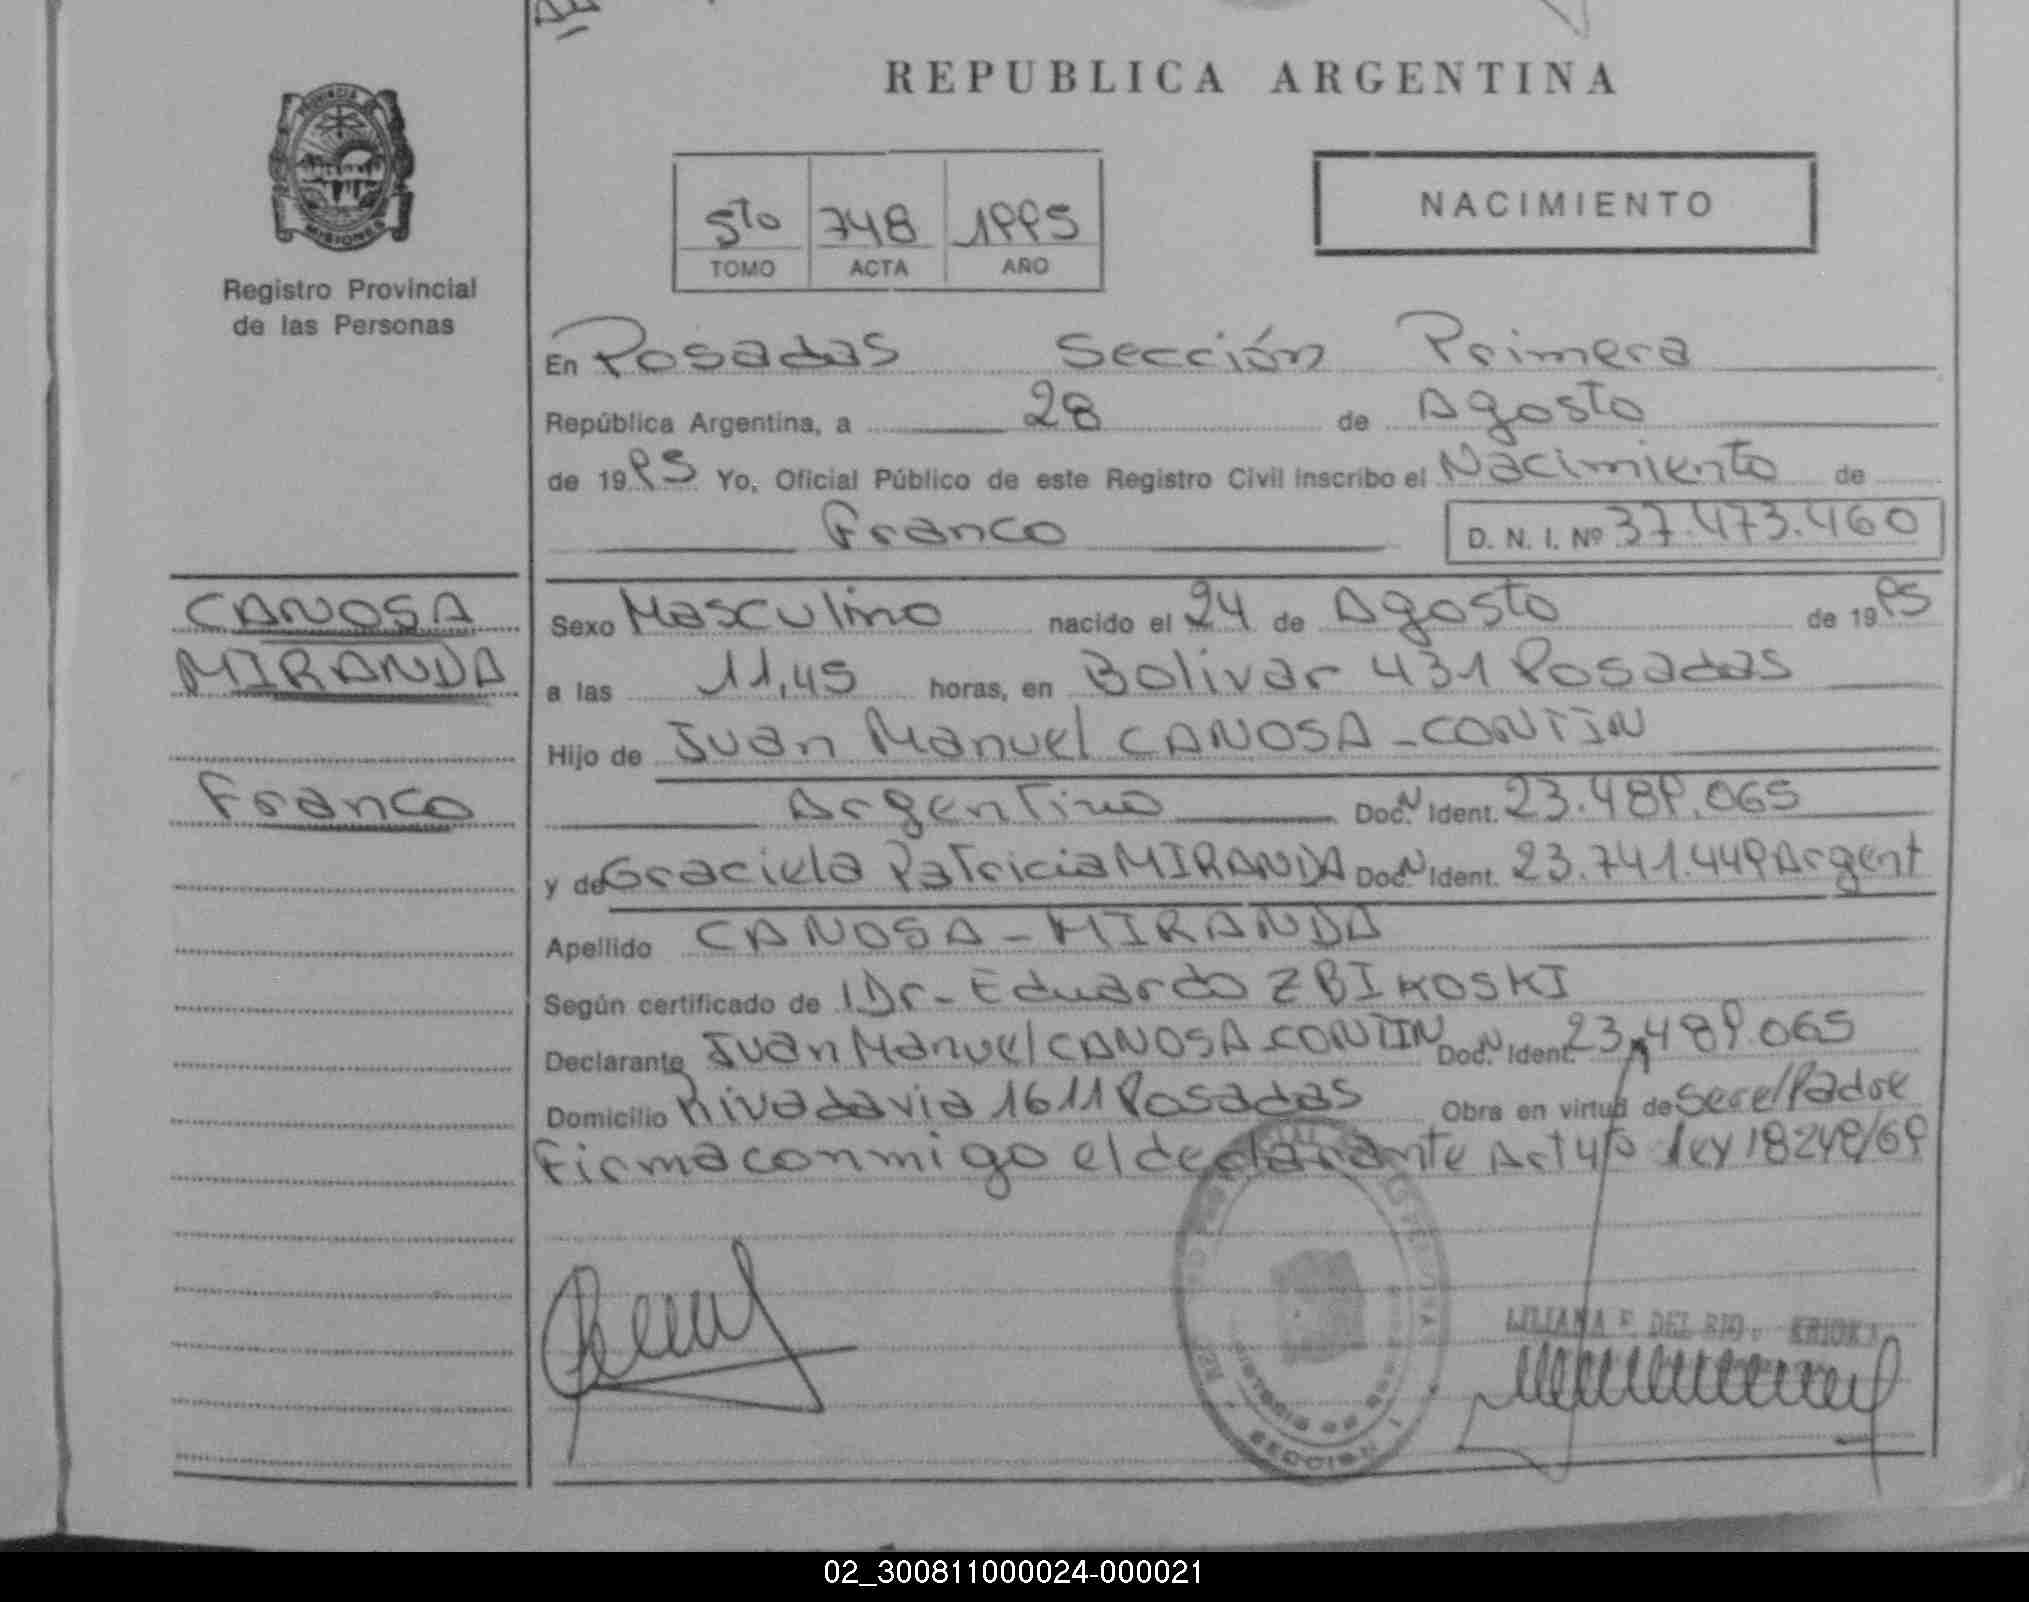 REPUBLICA ARGENTINA
PROVINCIA DE
MISIONES
Registro Provincial
de las Personas
5to 748 1995
TOMO ACTA AÑO
NACIMIENTO
En Posadas Sección Primera
República Argentina, a 28 de Agosto
de 1995 Yo, Oficial Público de este Registro Civil inscribo el Nacimiento de
Franco D. N. I. Nº 37.473.460
CANOSA
MIRANDA
Franco
Sexo Masculino nacido el 24 de Agosto de 1995
a las 11,45 horas, en Bolivar 431 Posadas
Hijo de Juan Manuel CANOSA-CONTIN
Argentino Doc. N Ident. 23.489.065
y de Graciela Patricia MIRANDA Doc. N Ident. 23.741.449 Argent
Apellido CANOSA-MIRANDA
Según certificado de Dr- Eduardo ZBIKOSKI
Declarante Juan Manuel CANOSA-CONTIN Doc. N Ident. 23.489.065
Domicilio Rivadavia 1611 Posadas Obra en virtud de Ser el Padre
Firma conmigo el declarante Art 4/5 ley 18248/69
LILIANA F. DEL RIO
SECCION 1
02_300811000024-000021